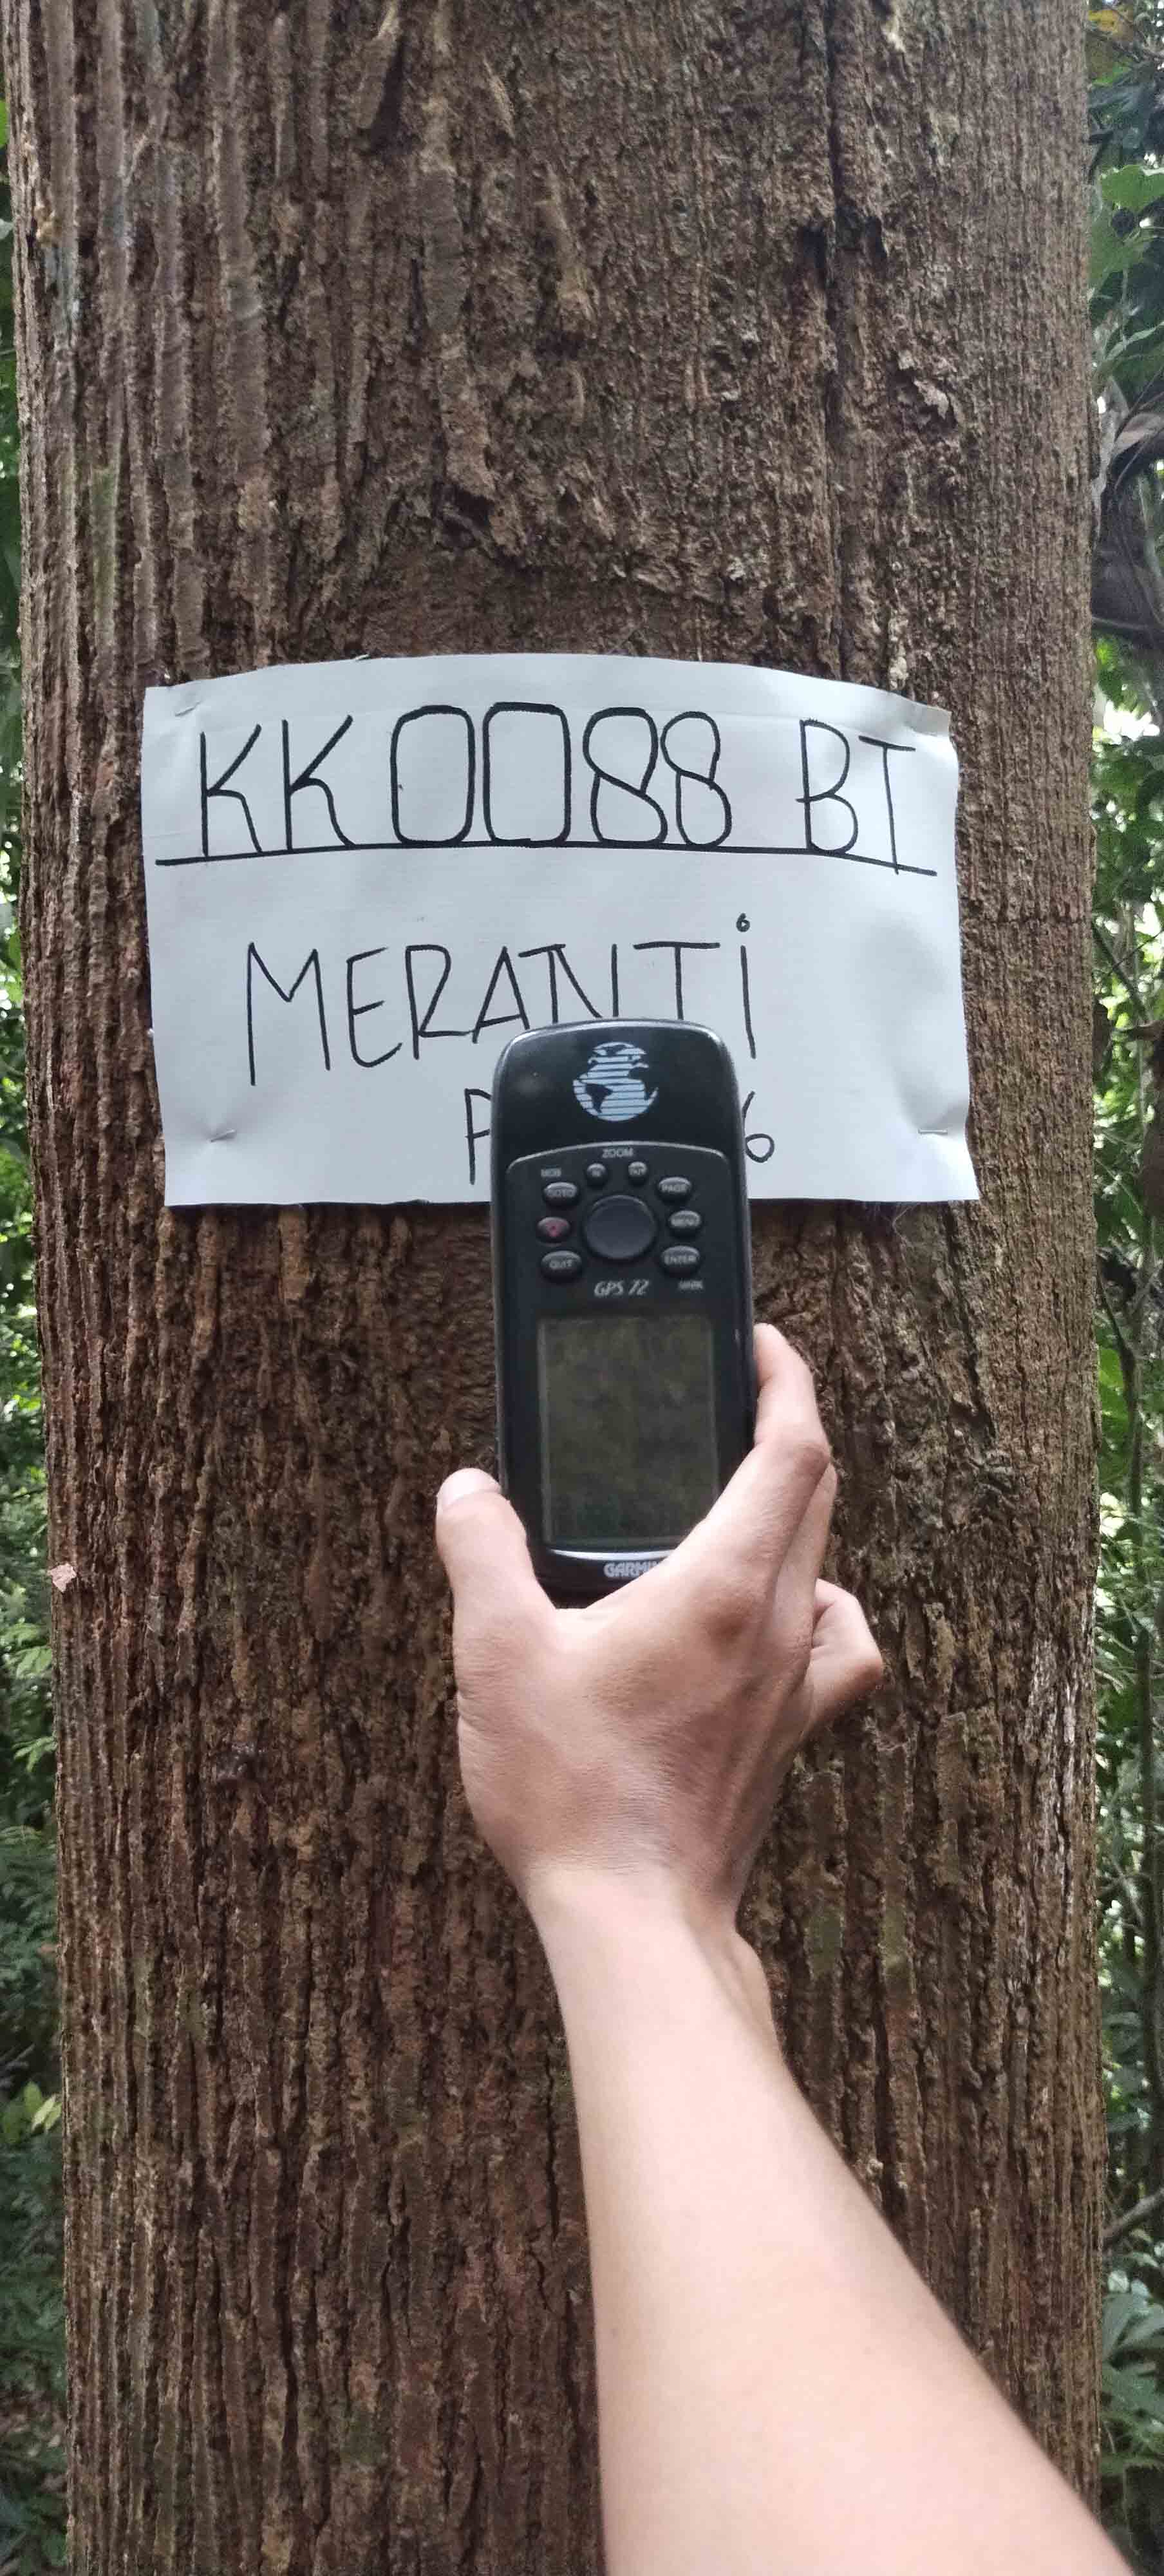 KK0088 BT
MERANTi
ZOOM
MOB
IN OUT
GOTO PAGE
MENU
QUIT ENTER
GPS 72 MARK
GARMIN